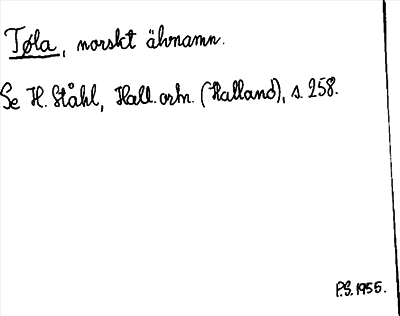 Tøla, norskt älvnamn.
Se H. Ståhl, Hall. ortn. (Halland), s. 258.
P.S. 1955.